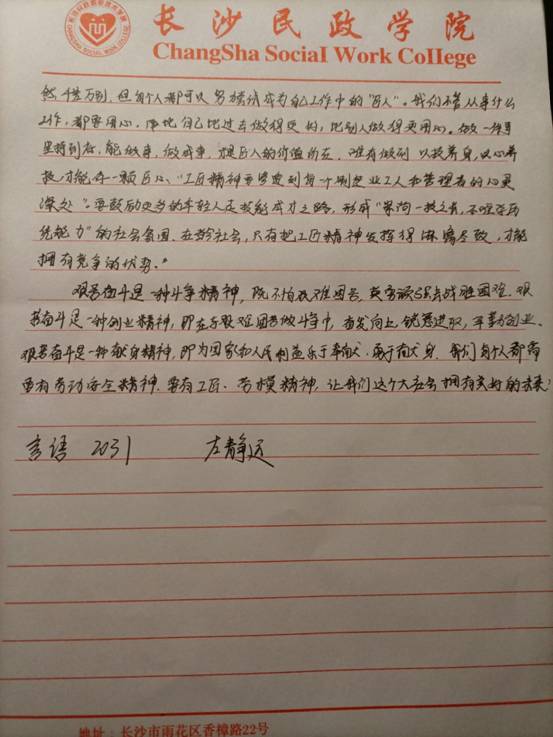 长沙民政学院
ChangSha Social Work College
然千差万别，但每个人都可以努力成为自己工作中的“匠人”。我们不管从事什么
工作，都要用心，自己比过去做得更好，比别人做得更用心。做一件事
坚持到底，能做事，做成事，是匠人的价值所在，唯有做到以技养身，以心养
技，才能有一颗匠心。“工匠精神要渗透到每一个制造业工人和管理者的心灵
深处”要鼓励更多的年轻人走技能成才之路，形成“崇尚一技之长，不唯学历
凭能力”的社会氛围。在当今社会，只有把工匠精神发挥得淋漓尽致，才能
拥有竞争的优势。”
艰苦奋斗是一种斗争精神，既不怕艰难困苦，英勇顽强去战胜困难。艰
苦奋斗是一种创业精神，即在与艰难困苦做斗争中，奋发向上，锐意进取，辛勤创业。
艰苦奋斗是一种献身精神，即为国家和人民利益乐于奉献，勇于献身。我们每个人都需
要有劳动安全精神，要有工匠、劳模精神，让我们这个大社会拥有美好的未来！
言语 2031 左静远
地址：长沙市雨花区香樟路22号